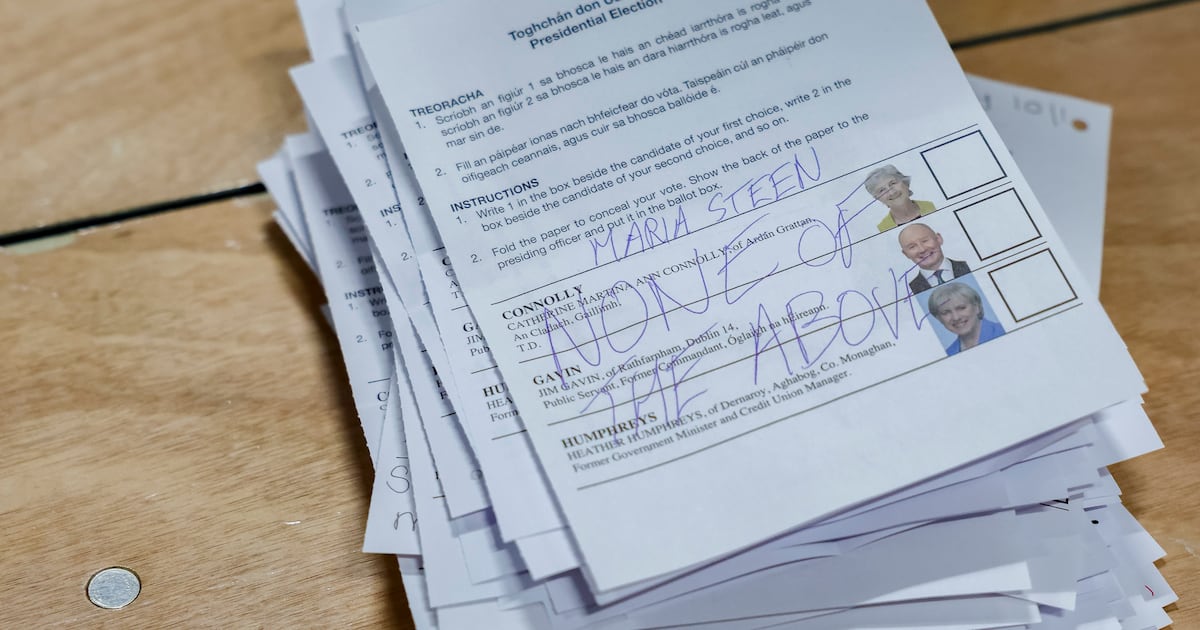 Toghchán don
Presidential Election
TREORACHA
1. Scríobh an figiúr 1 sa bhosca le hais an chéad iarrthóra is rogha
scríobh an figiúr 2 sa bhosca le hais an dara hiarrthóra is rogha leat, agus
mar sin de.
2. Fill an páipéar ionas nach bhfeicfear do vóta. Taispeáin cúl an pháipéir don
oifigeach ceannais, agus cuir sa bhosca ballóide é.
INSTRUCTIONS
1. Write 1 in the box beside the candidate of your first choice, write 2 in the
box beside the candidate of your second choice, and so on.
2. Fold the paper to conceal your vote. Show the back of the paper to the
presiding officer and put it in the ballot box.
MARIA STEEN
CONNOLLY
CATHERINE MARTINA ANN CONNOLLY, of Ardán Grattan,
An Cladach, Gaillimh.
T.D.
NONE OF
GAVIN
JIM GAVIN, of Rathfarnham, Dublin 14,
Public Servant, Former Commandant, Óglaigh na hÉireann.
THE ABOVE
HUMPHREYS
HEATHER HUMPHREYS, of Dernaroy, Aghabog, Co. Monaghan,
Former Government Minister and Credit Union Manager.